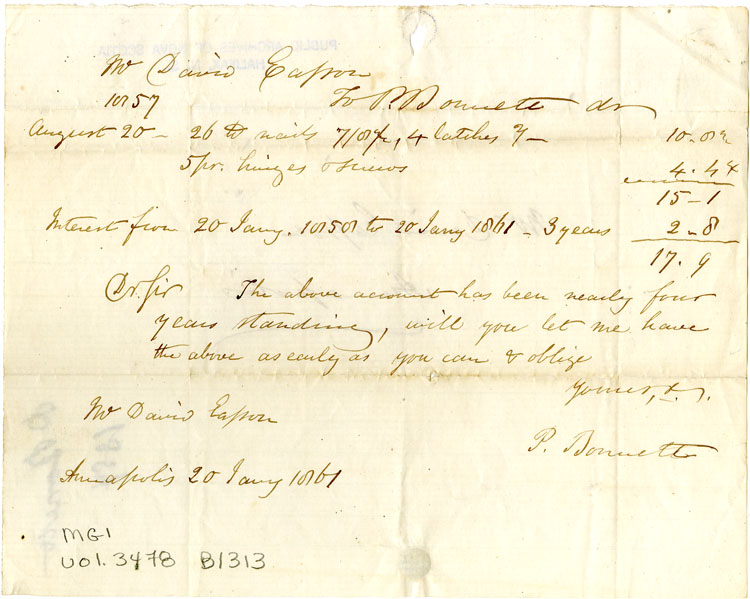 PUBLIC ARCHIVES OF NOVA SCOTIA
HALIFAX, N. S.
Mr David Easson
1857 To P. Bonnett dr
August 20 - 26 lb nails 7/8½, 4 latches 3/- 10-8½
5 pr. hinges & screws 4.4½
15-1
Interest from 20 Jany. 1858 to 20 Jany 1861 - 3 years 2-8
17.9
Dr. Sir The above account has been nearly four
years standing, will you let me have
the above as early as you can & oblige
Yours, &.
P. Bonnett
Mr David Easson
Annapolis 20 Jany 1861
MG1
vol. 3478 B1313